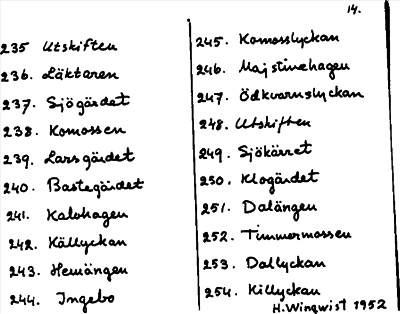 14.
235 Utskiften
236. Läktaren
237. Sjögärdet
238. Komossen
239. Larsgärdet
240. Bastegärdet
241. Kalvhagen
242. Källyckan
243. Hemängen
244. Ingebo
245. Komosslyckan
246. Majstinehagen
247. Ödkvarnslyckan
248. Utskiften
249. Sjökärret
250. Klogärdet
251. Dalängen
252. Timmermossen
253. Dallyckan
254. Killyckan
H. Winqwist 1952